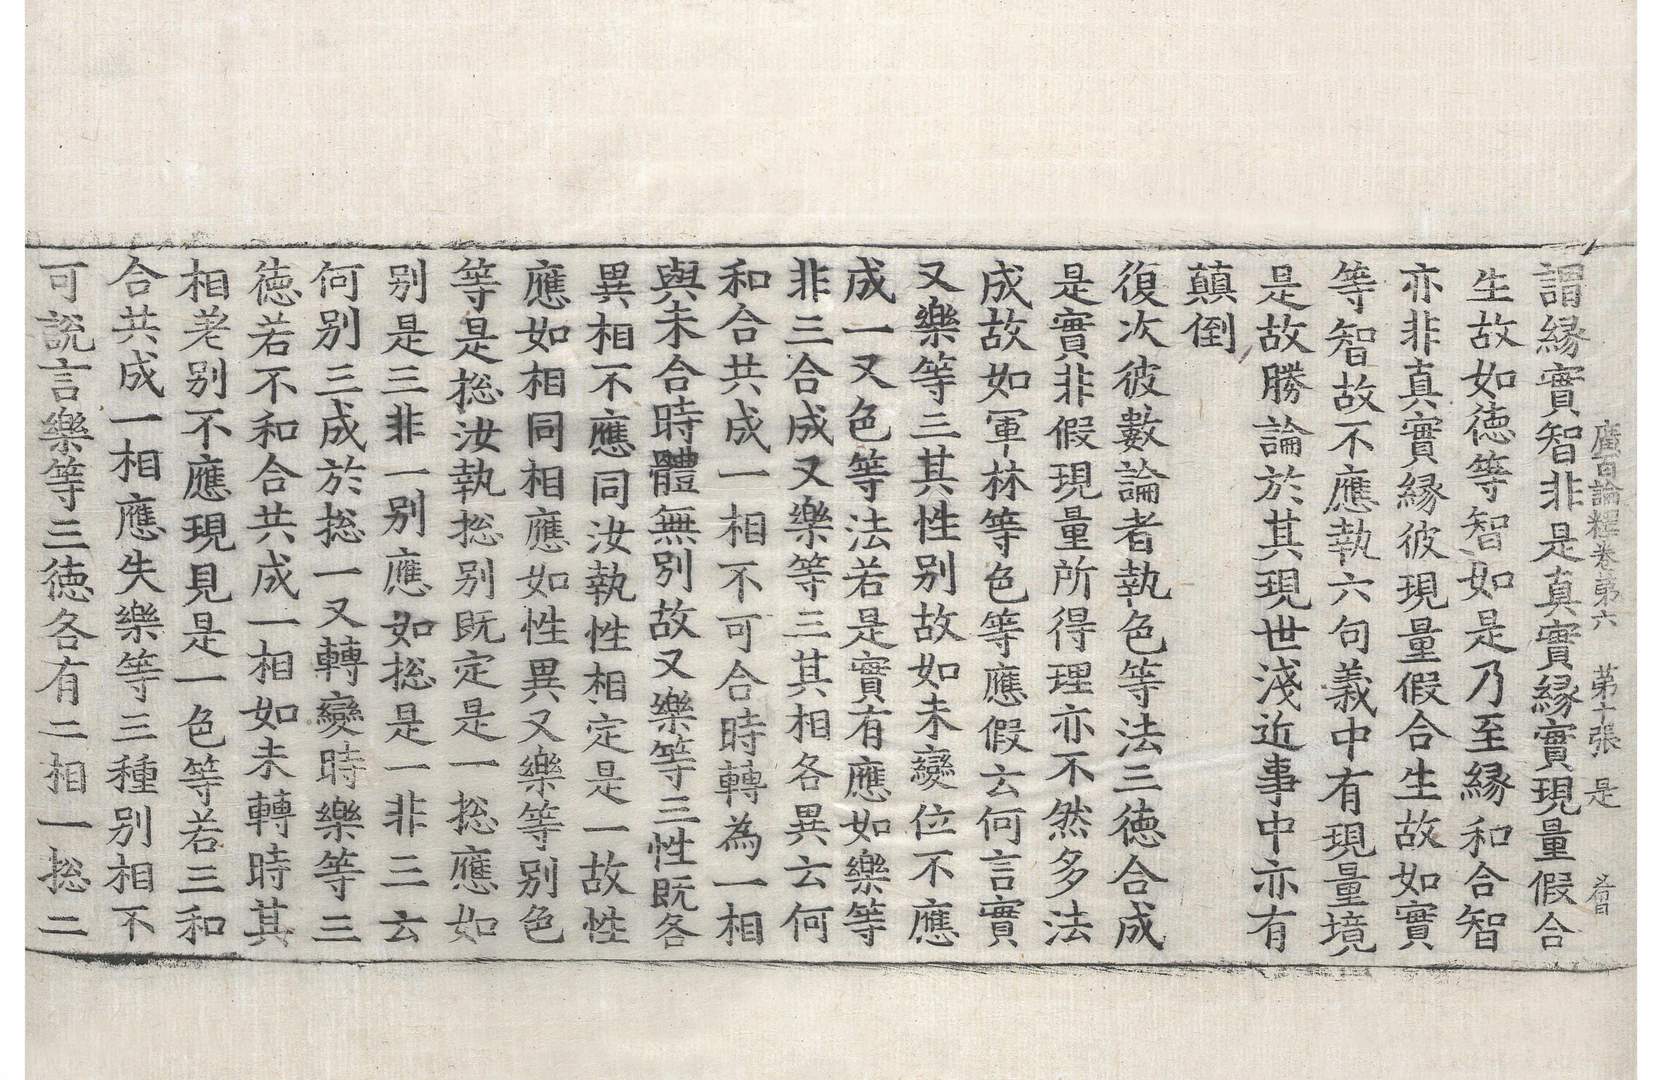 廣百論釋卷第六　第十張　是
謂縁實智非是真實縁實現量假合
生故如徳等智如是乃至縁和合智
亦非真實縁彼現量假合生故如實
等智故不應執六句義中有現量境
是故勝論於其現世淺近事中亦有
顛倒
復次彼數論者執色等法三徳合成
是實非假現量所得理亦不然多法
成故如軍林等色等應假云何言實
又樂等三其性别故如未變位不應
成一又色等法若是實有應如樂等
非三合成又樂等三其相各異云何
和合共成一相不可合時轉為一相
與未合時體無别故又樂等三性既各
異相不應同汝執性相定是一故性
應如相同相應如性異又樂等别色
等是揔汝執揔别既定是一揔應如
别是三非一别應如揔是一非三云
何别三成於揔一又轉變時樂等三
徳若不和合共成一相如未轉時其
相差别不應現見是一色等若三和
合共成一相應失樂等三種别相不
可說言樂等三徳各有二相一揔二